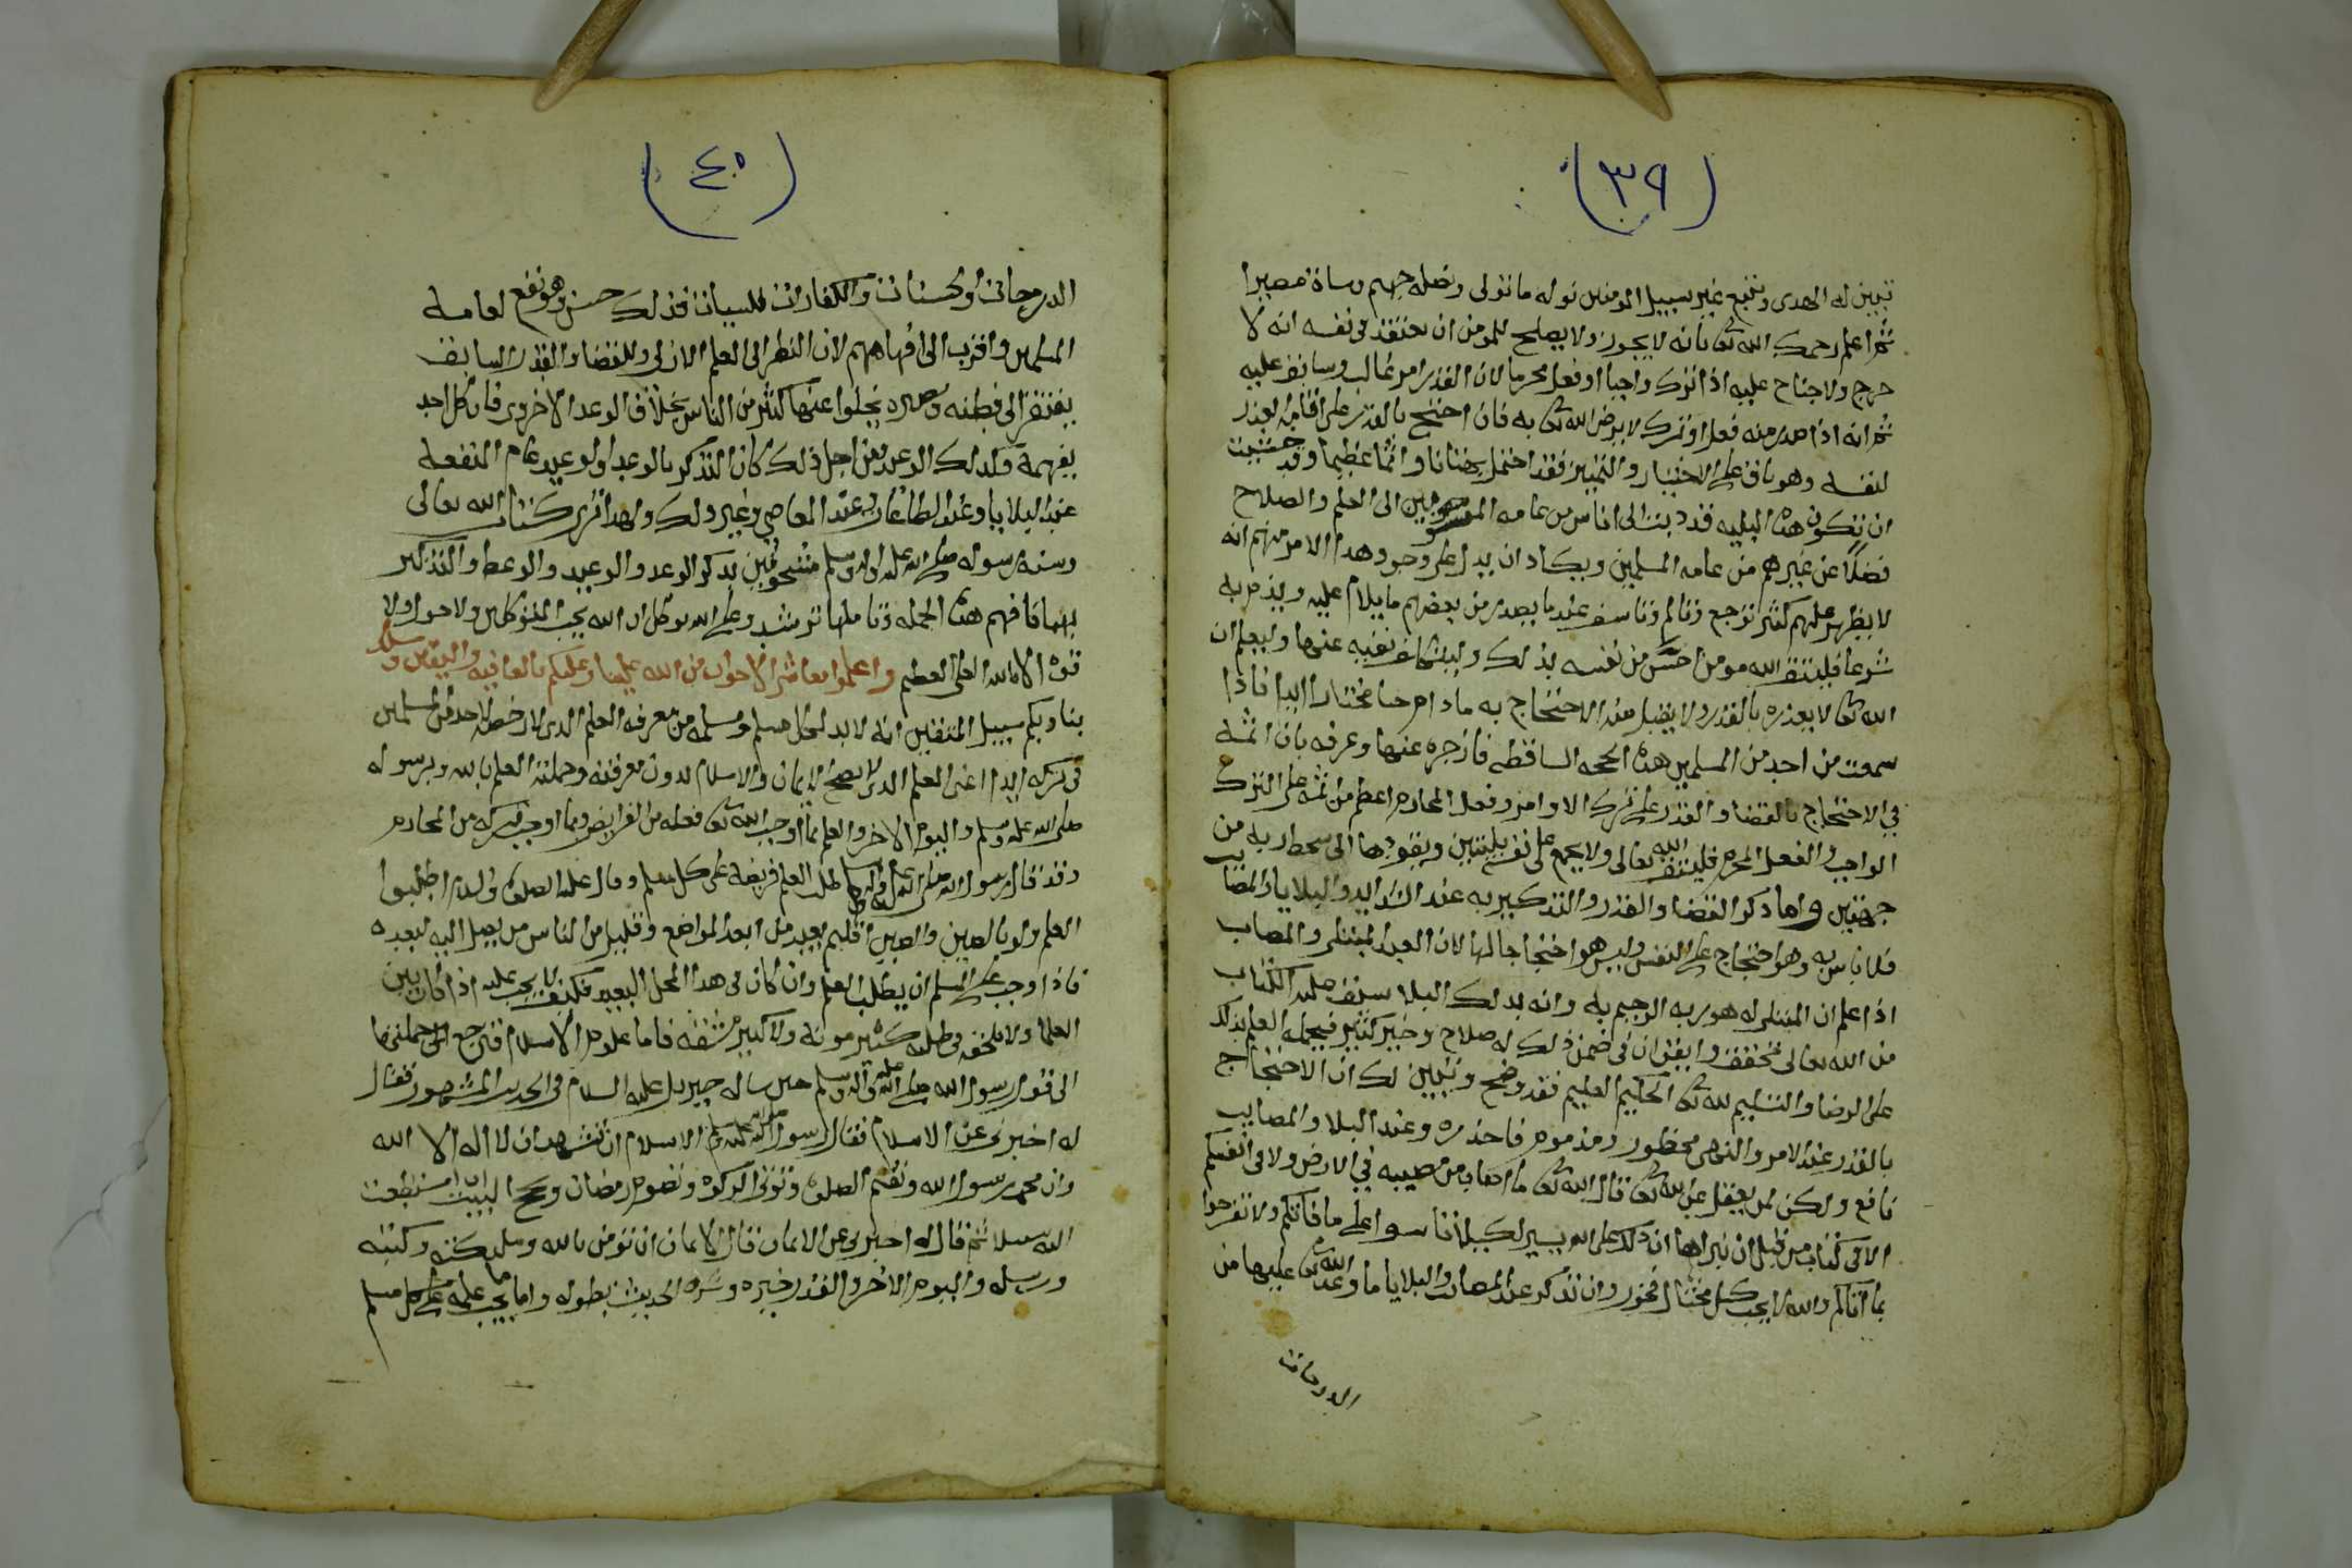 (٣٩)
تبين له الهدى ويتبع غير سبيل المومنين نوله ما تولى ونصله جهنم وساة مصيرا
ثم اعلم رحمك الله تعا بانه لا يجوز ولا يصلح للمومن ان يعتقد في نفسه انه لا
حرج ولا جناح عليه اذا ترك واجبا او فعل محرما لان القدر امر غالب وسابق عليه
ثم انه اذا صدر منه فعل او ترك لا يرض الله تعا به فان احتج بالقدر على اقامة العذر
لنفسه وهو باق على الاختيار والتمييز فقد احتمل بهتانا واثما عظيما وقد خشيت
ان تكون هذه البليه قد دبت الى اناس من عامه المنسوبين الى العلم والصلاح
فضلا عن غيرهم من عامه المسلمين ويكاد ان يدل على وجود هذا الامر منهم انه
لا يظهر عليهم كثير توجع وتالم وتاسف عندما يصدر من بعضهم ما يلام عليه ويذم به
شرعا فليتق الله مومن احس من نفسه بذلك وليتكلف نفيه عنها وليعلم ان
الله تعا لا يعذره بالقدر ولا يقبل منه الاحتجاج به ما دام حيا مختارا ابدا فاذا
سمعت من احد من المسلمين هذه الحجه الساقطه فازجره عنها وعرفه بان اثمه
في الاحتجاج بالقضا والقدر على ترك الاوامر وفعل المحارم اعظم من اثمه على الترك
الواجب والفعل المحرم فليتق الله تعالى ولا يجمع على نفسه بليتين ويقودها الى سخط ربه من
جهتين واما ذكر القضا والقدر والتذكير به عند الشدايد والبلايا والمصايب
فلا باس به وهو احتجاج على النفس وليس هو احتجاجا لها لان العبد المبتلى والمصاب
اذا علم ان المبتلى له هو ربه الرحيم به وانه بذلك البلا سبق عليه الكتاب
من الله تعالى تخفف وايقن ان في ضمن ذلك له صلاح وخير كثير فيحمله العلم بذلك
على الرضا والتسليم لله تعا الحكيم العليم فقد وضح وتبين لك ان الاحتجاج
بالقدر عند الامر والنهي محظور ومذموم فاحذره وعند البلا والمصايب
نافع ولكن لمن يعقل عن الله تعا قال الله تعا ما اصاب من مصيبه في الارض ولا في انفسكم
الا في كتاب من قبل ان نبراها ان ذلك على الله يسير لكيلا تاسوا على ما فاتكم ولا تفرحوا
بما اتاكم والله لا يحب كل مختال فخور وان تذكر عند المصاب والبلايا ما وعد الله تعا عليها من
الدرجات
(٤٠)
الدرجات او الحسنات والكفارات للسيات فذلك حسن وهو نفع لعامه
المسلمين واقرب الى افهامهم لان النظر الى العلم الازلي وللقضا والقدر السابق
يفتقر الى فطنه وبصيره يخلوا عنها كثير من الناس بخلاف الوعد الاخروي فان كل احد
يفهمه وكذلك الوعيد فمن اجل ذلك كان التذكر بالوعد او الوعيد عام المنفعه
عند البلايا وعند الطاعات وعند المعاصي وغير ذلك ولهذا ترى كتاب الله تعالى
وسنة رسوله صلى الله عليه واله وسلم مشحونين بذكر الوعد والوعيد والوعظ والتذكير
بهما فافهم هذه الجمله وتاملها ترشد وعلى الله توكل ان الله يحب المتوكلين ولا حول ولا
قوه الا بالله العلي العظيم واعلموا معاشر الاخوان من الله علينا وعليكم بالعافيه واليقين وسلك
بنا وبكم سبيل المتقين انه لا بد لكل مسلم ومسلمه من معرفه العلم الذي لا رخصة لاحد من المسلمين
في تركه ابدا اعني العلم الذي لا يصح الايمان والاسلام بدون معرفته وجملته العلم بالله وبرسوله
صلى الله عليه وسلم واليوم الاخر والعلم بما اوجب الله تعا فعله من الفرايض وبما اوجب تركه من المحارم
وقد قال رسول الله صلى الله عليه واله وسلم طلب العلم فريضة على كل مسلم وقال عليه الصلوة والسلام اطلبوا
العلم ولو بالصين والصين اقليم بعيد من ابعد المواضع وقليل من الناس من يصل اليه لبعده
فاذا وجب على المسلم ان يطلب العلم وان كان في هذا المحل البعيد فكيف لا يجب عليه اذا كان بين
العلما ولا تلحقه في طلبه كثير مونة ولا كبير مشقه فاما علوم الاسلام فترجع الى جملتها
الى قول رسول الله صلى الله عليه واله وسلم حين ساله جبريل عليه السلام في الحديث المشهور فقال
له اخبرني عن الاسلام فقال رسول الله صلى الله عليه وسلم الاسلام ان تشهد ان لا اله الا الله
وان محمد رسول الله وتقيم الصلوة وتوتي الزكوة وتصوم رمضان وتحج البيت ان استطعت
اليه سبيلا ثم قال له اخبرني عن الايمان قال الايمان ان تومن بالله ومليكته وكتبه
ورسله واليوم الاخر والقدر خيره وشره الحديث بطوله واما ما يجب علمه على كل مسلم